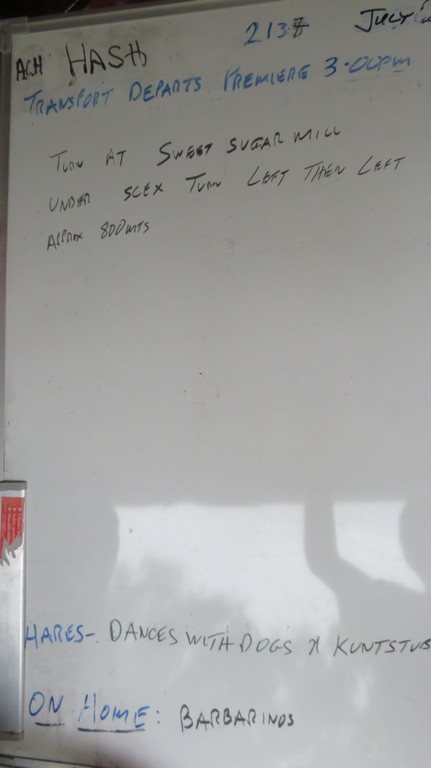 ACH HASH 2137 JULY
TRANSPORT DEPARTS PREMIERE 3-00PM
TURN AT SWEET SUGAR MILL
UNDER SCEX TURN LEFT THEN LEFT
APPROX 800MTS
HARES- DANCES WITH DOGS X KUNTSTUB
ON HOME: BARBARINOS